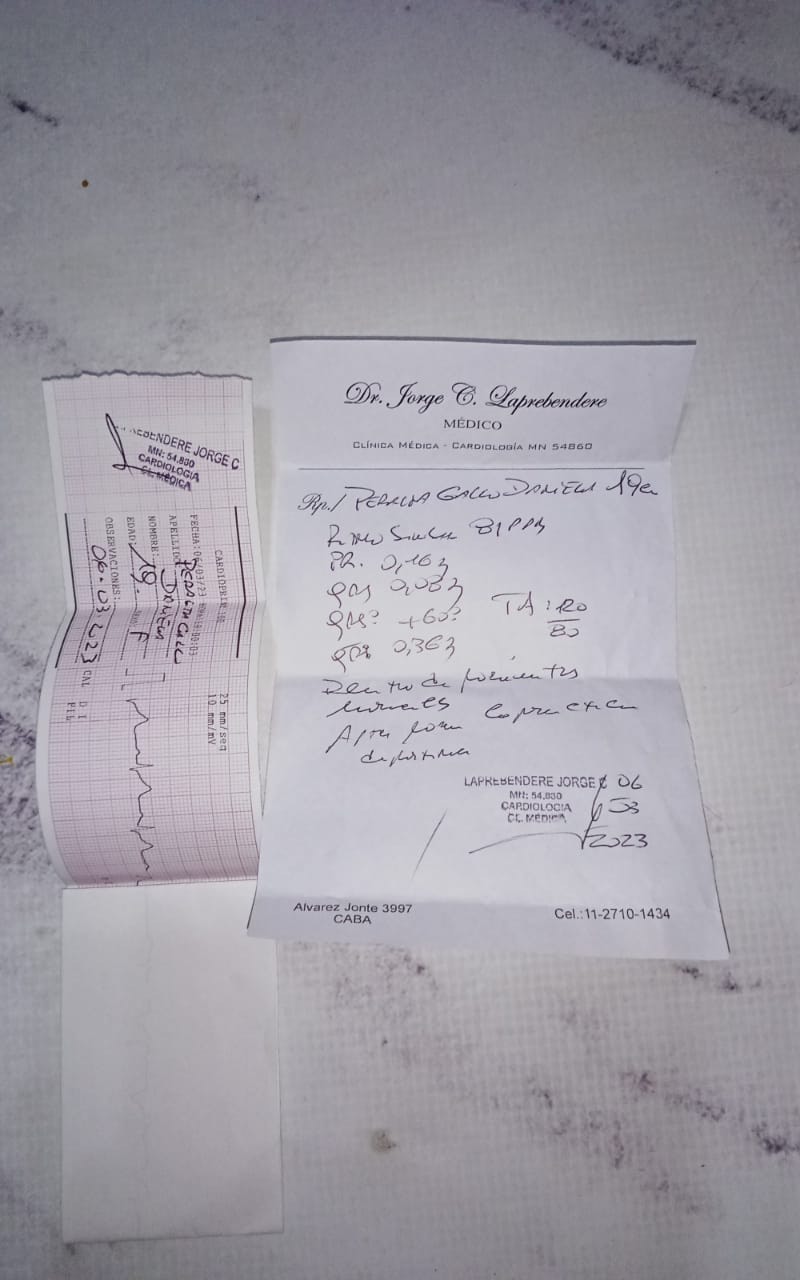 LAPREBENDERE JORGE C
MN: 54.830
CARDIOLOGIA
CL. MEDICA
CARDIOPRINT
FECHA: 06/03/23
APELLIDO: PERALTA GALLO
NOMBRE: DANIELA
EDAD: 19. F
OBSERVACIONES:
06.03.23
CAL D I
FIL
25 mm/seg
10 mm/mV
Dr. Jorge C. Laprebendere
MÉDICO
CLÍNICA MÉDICA - CARDIOLOGÍA MN 54860
Rp./ PERALTA GALLO DANIELA 19a
Ritmo Sinusal 81 PPM
PR. 0,16
QRS 0,08
+60°
0,36
TA: 120
80
Dentro de parámetros
normales
Apta para la practica
deportiva
LAPREBENDERE JORGE C 06
MN: 54.830 03
CARDIOLOGIA
CL. MEDICA
2023
Alvarez Jonte 3997
CABA
Cel.:11-2710-1434